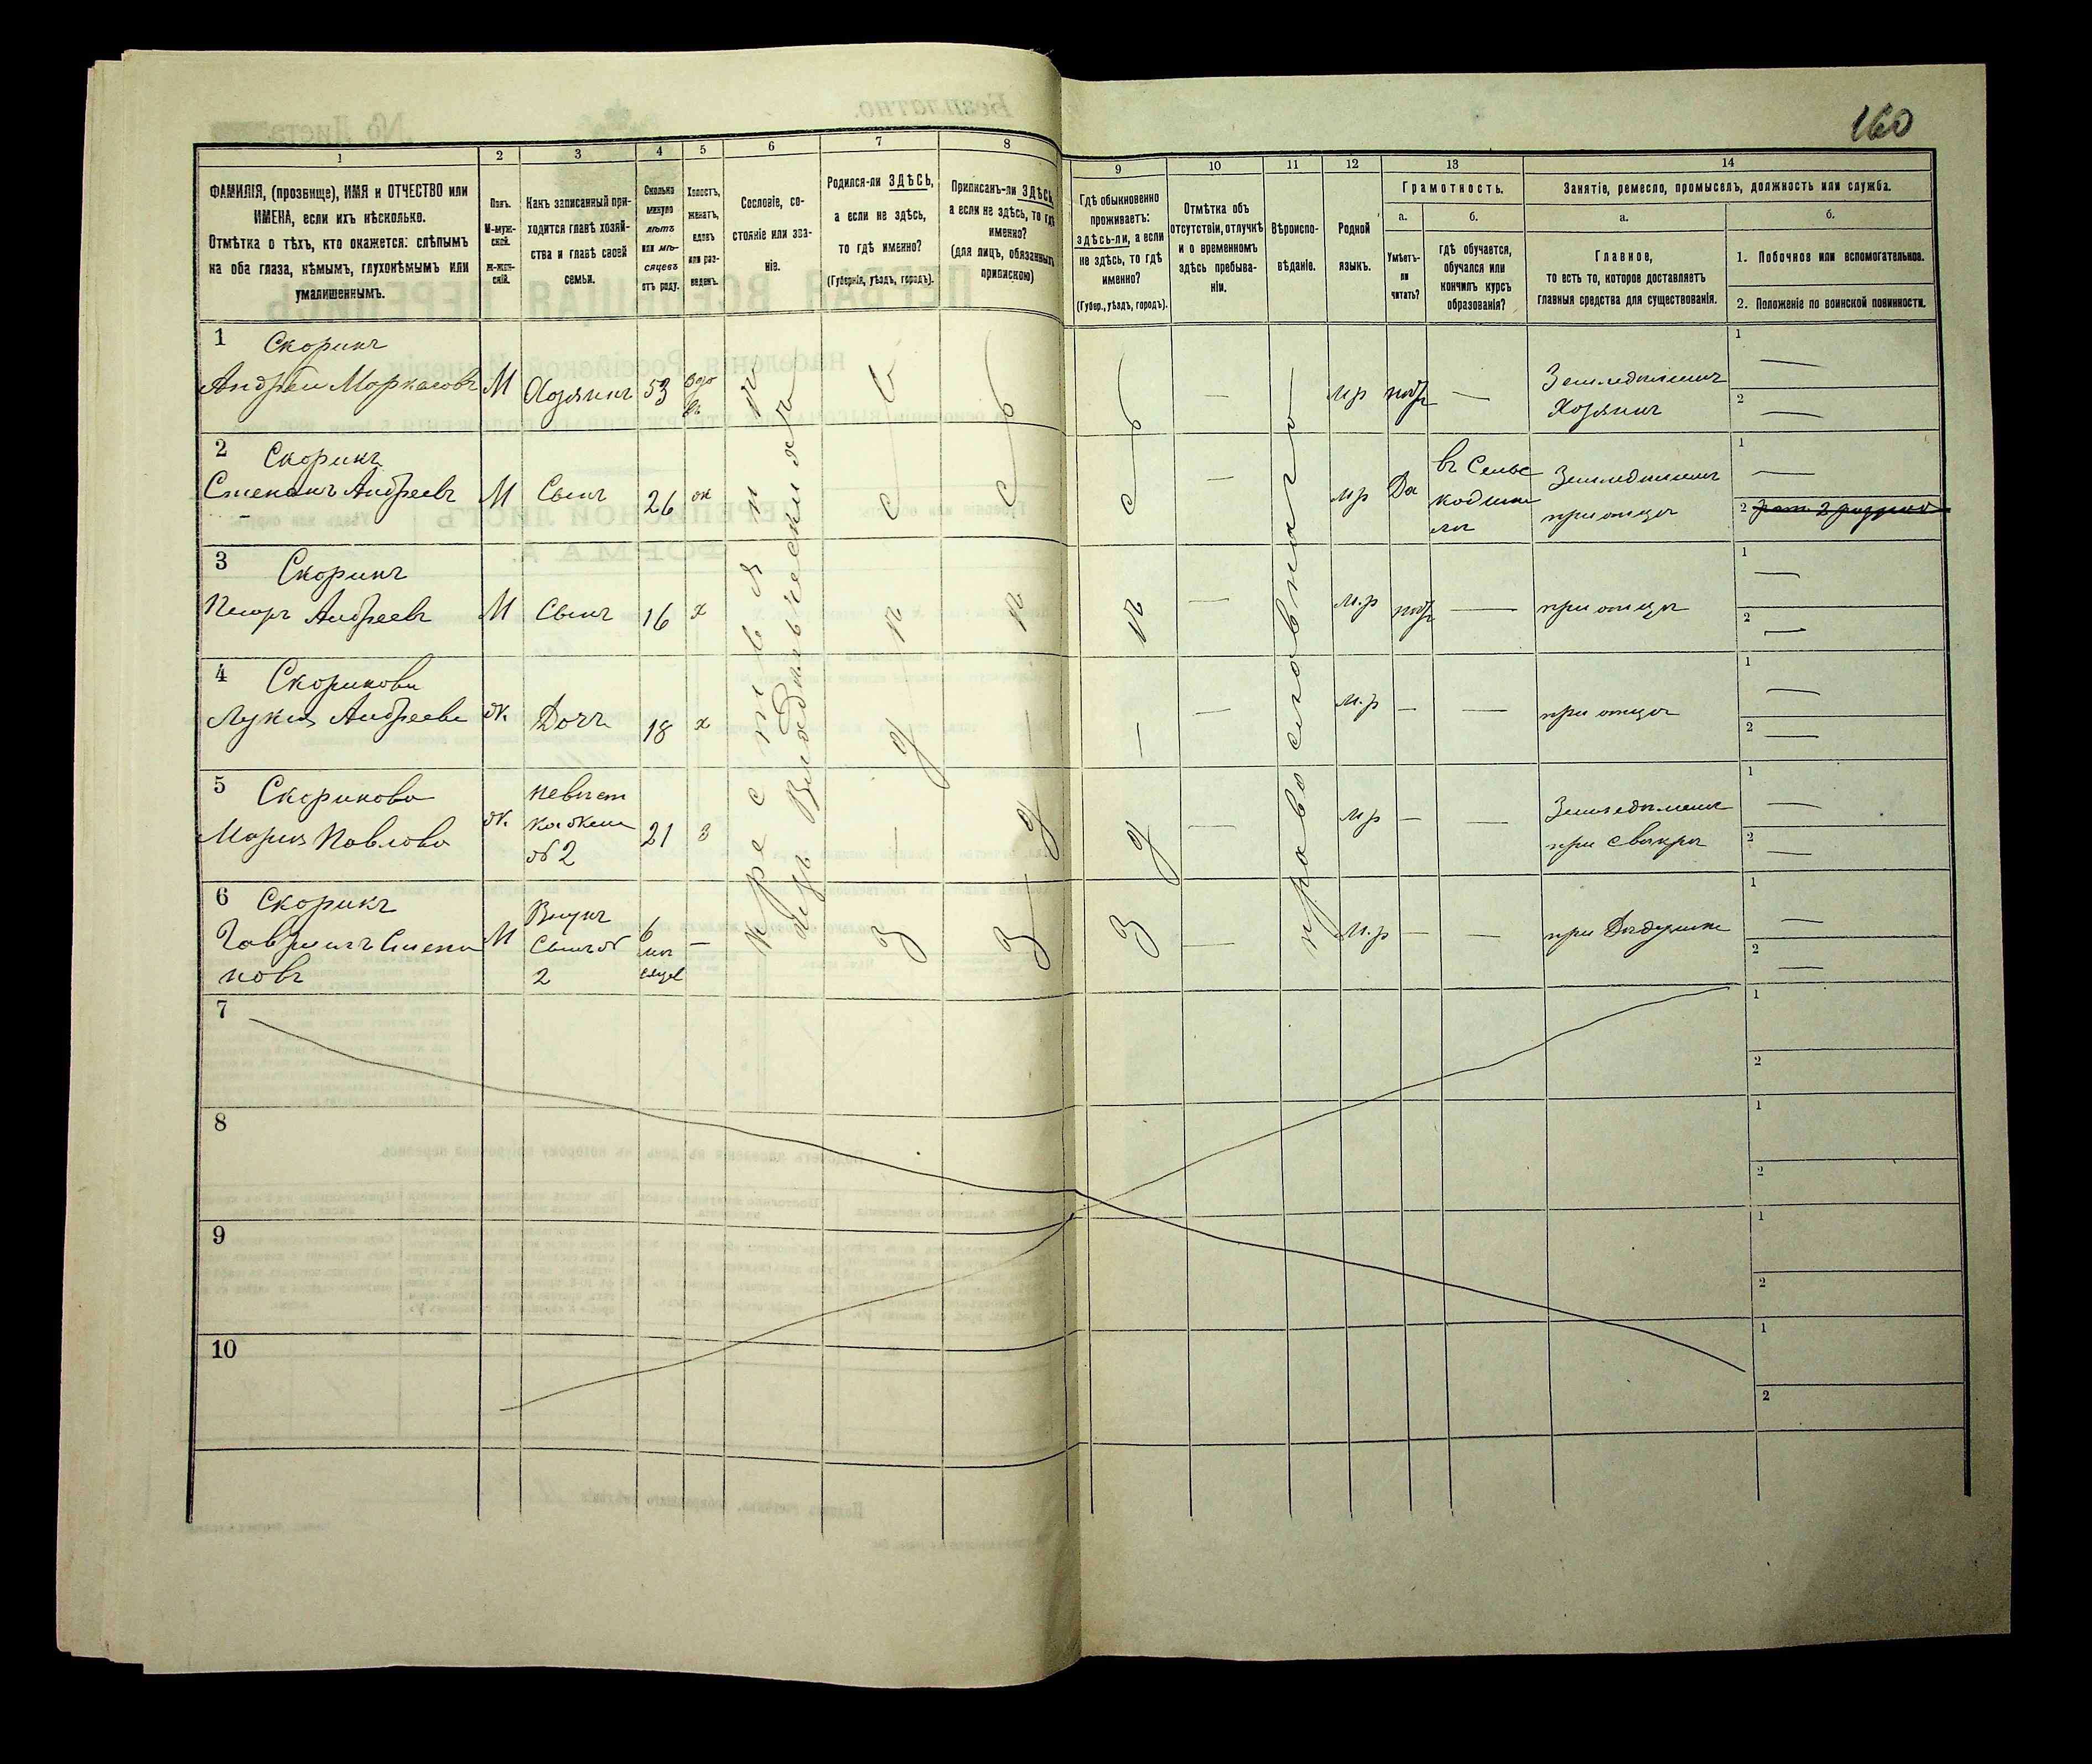 160
1
2
3
4
5
6
7
8
9
10
11
12
13
14
ФАМИЛІЯ, (прозвище), ИМЯ и ОТЧЕСТВО или
ИМЕНА, если ихъ нѣсколько.
Отмѣтка о тѣхъ, кто окажется: слѣпымъ
на оба глаза, нѣмымъ, глухонѣмымъ или
умалишеннымъ.
Полъ.
М-муж-
ской.
ж-жен-
скій.
Какъ записанный при-
ходится главѣ хозяй-
ства и главѣ своей
семьи.
Сколько
минуло
лѣтъ
или мѣ-
сяцевъ
отъ роду.
Холостъ,
женатъ,
вдовъ
или раз-
веденъ.
Сословіе, со-
стояніе или зва-
ніе.
Родился-ли ЗДѢСЬ,
а если не здѣсь,
то гдѣ именно?
(Губернія, уѣздъ, городъ).
Приписанъ-ли ЗДѢСЬ,
а если не здѣсь, то гдѣ
именно?
(для лицъ, обязанныхъ
припискою)
Гдѣ обыкновенно
проживаетъ:
здѣсь-ли, а если
не здѣсь, то гдѣ
именно?
(Губер., уѣздъ, городъ).
Отмѣтка объ
отсутствіи, отлучкѣ
и о временномъ
здѣсь пребыва-
ніи.
Вѣроиспо-
вѣданіе.
Родной
языкъ.
Грамотность.
а.
Умѣетъ-
ли
читать?
б.
гдѣ обучается,
обучался или
кончилъ курсъ
образованія?
Занятіе, ремесло, промыселъ, должность или служба.
а.
Главное,
то есть то, которое доставляетъ
главныя средства для существованія.
б.
1. Побочное или вспомогательное.
2. Положеніе по воинской повинности.
крестьянинъ
изъ Владѣльческихъ
православнаго
1 Скорикъ
Андрей Маркасовъ М Хозяинъ 53 вдо
въ — м р нѣтъ — Земледѣлецъ
Хозяинъ 1 —
2 —
2 Скорикъ
Степанъ Андреевъ М Сынъ 26 ж — м р Да въ Сельс
кой шко
лѣ Земледѣлецъ
при отцѣ 1 —
2
3 Скорикъ
Петръ Андреевъ М Сынъ 16 х — м.р нѣтъ — при отцѣ 1 —
2 —
4 Скорикова
Лукия Андреева ж. Дочь 18 х — м.р — — при отцѣ 1 —
2 —
5 Скорикова
Мария Павлова ж. невѣст
ка жена
№ 2 21 з — м р — — Земледѣлецъ
при свекрѣ 1 —
2 —
6 Скорикъ
Гавріилъ Степа
новъ М Внукъ
Сынъ №
2 6
мѣ
сяцев — — м.р — — при Дѣдушке 1 —
2 —
7 1
2
8 1
2
9 1
2
10 1
2